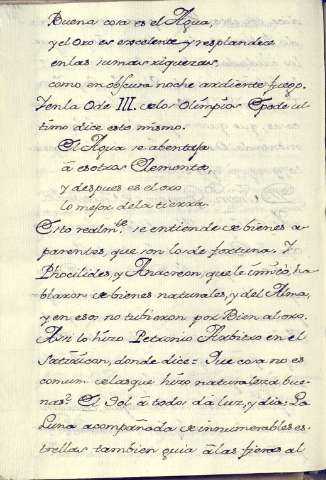 Buena cosa es el Agua,
y el oro es excelente y resplandece
en las sumas riquezas,
como en obscura noche ardiente fuego.
Y en la Ode III. de los Olimpios Epode ul-
timo dice esto mismo.
El Agua se abentaja
â esotros Elementos,
y despues es el oro
lo mejor de la tierra.
Esto realm.te se entiende de bienes a-
parentes, que son los de fortuna. Y
Phocilides, y Anacreon, que le imitò, ha-
blaron de bienes naturales, y del Alma,
y en eso, no tubieron por Bien al oro.
Asi lo hizo Petronio Arbitro en el
Satiricon, donde dice: Que cosa no es
comun de las que hizo naturaleza bue-
nas? El Sol â todos dâ luz, y dia: La
Luna acompañada de innumerables es-
trellas tambien guia â las fieras al